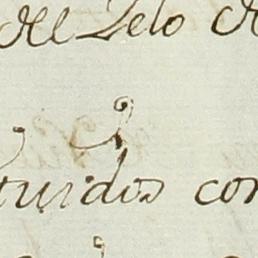 del Zelo
tuidos con